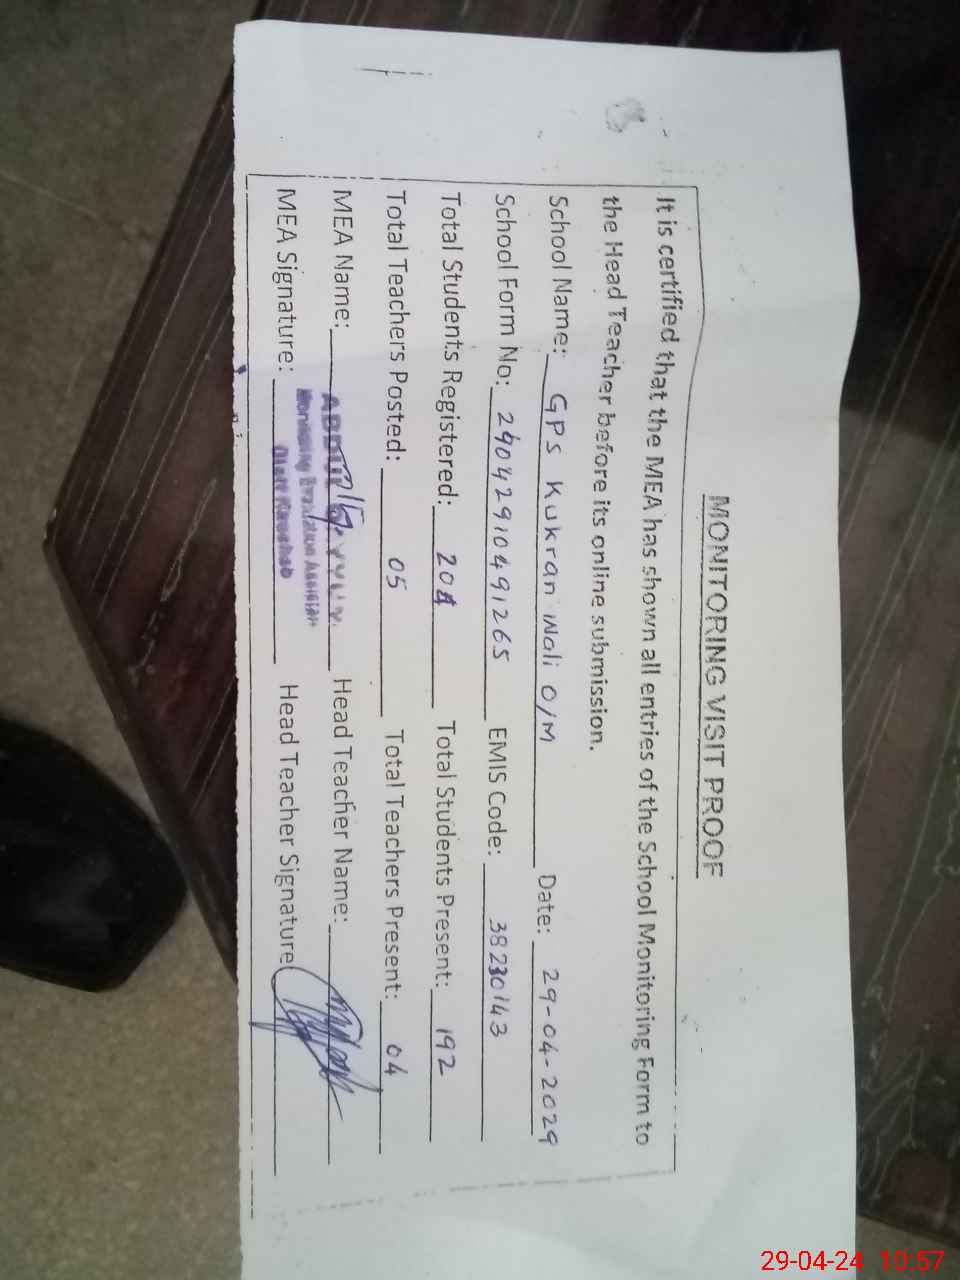 MONITORING VISIT PROOF
It is certified that the MEA has shown all entries of the School Monitoring Form to
the Head Teacher before its online submission.
School Name: GPS Kukran Wali O/M Date: 29-04-2029
School Form No: 29042910491265 EMIS Code: 38230143
Total Students Registered: 204 Total Students Present: 192
Total Teachers Posted: 05 Total Teachers Present: 04
MEA Name: Head Teacher Name:
Monitoring Evaluation Assistant
MEA Signature: Head Teacher Signature
29-04-24 10:57